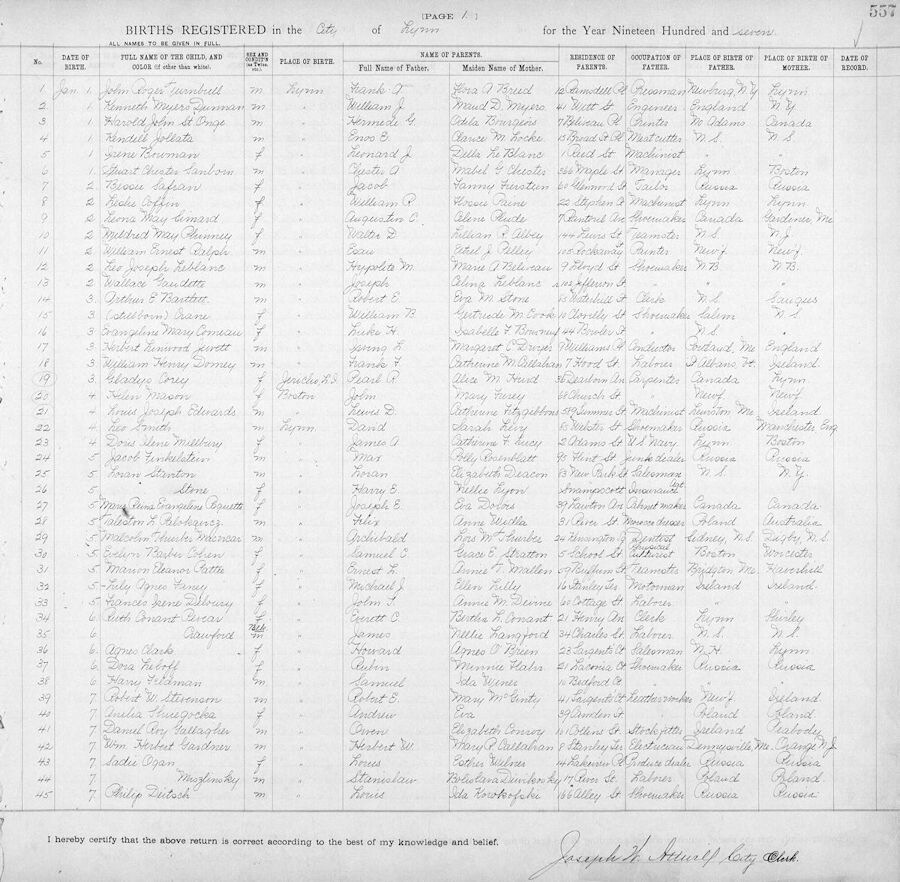 [PAGE 1.]
557
BIRTHS REGISTERED in the City of Lynn for the Year Nineteen Hundred and seven
ALL NAMES TO BE GIVEN IN FULL.
No. DATE OF BIRTH. FULL NAME OF THE CHILD, AND COLOR (if other than white). SEX AND CONDIT'N (as Twins, etc.) PLACE OF BIRTH. NAME OF PARENTS. Full Name of Father. Maiden Name of Mother. RESIDENCE OF PARENTS. OCCUPATION OF FATHER. PLACE OF BIRTH OF FATHER. PLACE OF BIRTH OF MOTHER. DATE OF RECORD.
1 Jan. 1 John Roger Turnbull m Lynn Frank A Flora A Breed 12 Ramsdell Pl Pressman Newburg, N.Y Lynn
2 1 Kenneth Myers Dunnan m " William J. Maud D. Myers 41 Witt St Engineer England N.Y
3 1 Harold John St Onge m " Hermede G. Odela Bourgeois 7 Beliveau Pl Painter Mc Adams Canada
4 1 Kendell Jollata m " Enos E. Clarice M. Locke 13 Broad St Pl Meatcutter N.S. N.S.
5 1 Irene Bowman f " Leonard J. Della Le Blanc 1 Reed St. Machinist " "
6 1 Stuart Chester Sanborn m " Chester A Mabel G. Chester 366 Maple St Manager Lynn Boston
7 2 Bessie Safran f " Jacob Fanny Fierstein 60 Glenwood St Tailor Russia Russia
8 2 Leslie Coffin f " William P. Flossie Paine 22 Stephen St Machinist Lynn Lynn.
9 2 Leona May Simard f " Augustin C. Celene Plude 7 Sentinel Av Shoemaker Canada Gardiner Me
10 2 Mildred May Phinney f " Walter D. Lillian R. Albey 144 Lewis St Teamster N.S. N.J.
11 2 William Ernest Ralph m " Esau Ethel J. Pelley 100 Rockaway St Painter Newf. Newf.
12 2 Leo Joseph Leblanc m " Hypolite M. Marie A. Beliveau 9 Lloyd St Shoemaker N.B. N.B.
13 2 Wallace Gaudette m " Joseph Celina Leblanc 102 Jefferson St " " "
14 3 Arthur E Bartlett m " Robert E. Eva M. Stone 53 Waterhill St Clerk N.S. Saugus
15 3 (stillborn) Crane f " William B. Gertrude M. Cook 10 Clovelly St Shoemaker Salem N.S
16 3 Evangeline Mary Comeau f " Luke H. Isabelle F. Bowney 44 Boulev St " N.S. "
17 3 Herbert Linwood Jewett m " Irving L. Margaret C. Dwyer 9 Williams Pl Conductor Portland, Me England
18 3 William Henry Domey m " Frank F. Catherine M. Callahan 7 Hood St Laborer St Albans, Vt. Ireland
19 3 Gladys Corey f Jericho, L.I. Pearl R. Alice M. Hurd 36 Dearborn Av Carpenter Canada Lynn.
20 4 Helen Mason f Boston John Mary Furey 68 Church St " Newf. Newf.
21 4 Louis Joseph Edwards m " Lewis D. Catherine Fitzgibbons 519 Summer St Machinist Lewiston Me. Ireland
22 4 Leo Smith m Lynn David Sarah Levy 53 Webster St Shoemaker Russia Manchester Eng
23 4 Doris Ilene Millbury f " James A Catherine F. Lucy 2 Adams St U.S Navy Lynn Boston
24 5 Jacob Finkelstein m " Max Polly Rosenblatt 93 Flint St Junk dealer Russia Russia
25 5 Loran Stanton m " Loran Elizabeth Deacon 83 New Park St Salesman N.S. N.Y
26 5 Stone f " Harry E. Nellie Lyon Swampscott Insurance Agt " "
27 5 Marie Reina Evangeline Paquette f " Joseph E. Eva Dolors 39 Lawton Av Cabinet maker Canada Canada
28 5 m " Felix Anne Wedla 31 River St Morocco dresser Poland Australia
29 5 Malcolm Thurber Macnear m " Archibald Lois Mc Thurber 24 Kensington Sq Dentist Sidney, N.S. Digby, N.S.
30 5 Evelyn Barber Cohen f " Samuel E. Grace E. Stratton 5 School St Physical Culturist Boston Worcester
31 5 Marion Eleanor Pattie f " Ernest L. Annie T. Mallen 59 Bulfum St Teamster Bridgton Me. Haverhill
32 5 Lily Agnes Faney f " Michael J. Ellen Lilly 16 Stanley Ter Motorman Ireland Ireland.
33 5 Frances Irene Delbury f " John T. Annie M. Devine 60 Cottage St Laborer " "
34 6 Ruth Conant Percar f " Everett C. Bertha L. Conant 21 Henry Av Clerk Lynn Shirley
35 6 Crawford Blk. m " James Nellie Langford 34 Charles St Laborer N.S. N.S.
36 6 Agnes Clark f " Howard Agnes O'Brien 23 Sargents Ct Salesman N.H. Lynn
37 6 Dora Leboff f " Rubin Minnie Flahr 21 Laconia Ct Shoemaker Russia Russia
38 6 Harry Feldman m " Samuel Ida Winer 10 Bedford Ct " " "
39 7 Robert W. Stevenson m " Robert E. Mary McGinty 41 Sargents Ct Leatherworker Newf. Ireland.
40 7 Julia Shuegocka f " Andrew Eva 39 Camden St " Poland Poland.
41 7 Daniel Roy Gallagher m " Owen Elizabeth Conroy 101 Collins St Stockfitter Ireland Peabody
42 7 Wm Herbert Gardner m " Herbert W. Mary P. Callahan 9 Stanley Ter Electrician Dennysville, Me. Orange N.J.
43 7 Sadie Ogan f " Louis Esther Welner 14 Lakeview Pl Produce dealer Russia Russia
44 7 Muszlinsky m " Stanislaw Bolistava Dembrosky 17 River St. Laborer Poland Poland
45 7 Philip Deitsch m " Louis Ida Kowkofski 166 Alley St Shoemaker Russia Russia
I hereby certify that the above return is correct according to the best of my knowledge and belief.
Joseph W. Attwill City Clerk.